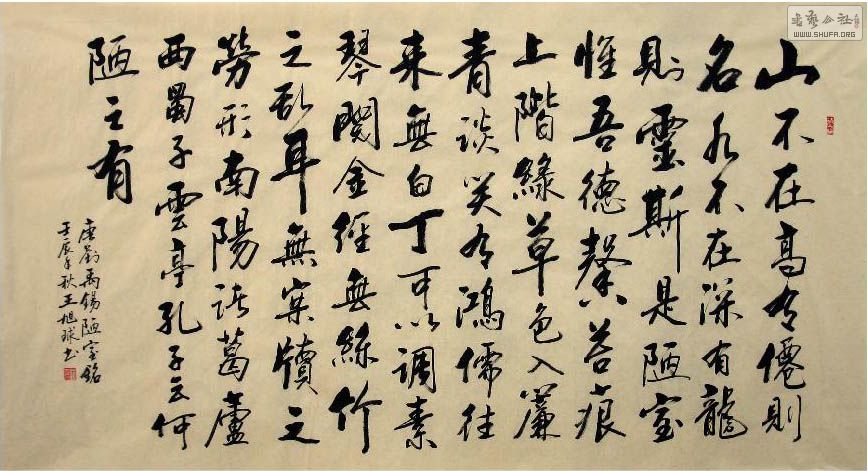 山不在高有僊則
名水不在深有龍
則靈斯是陋室
惟吾德馨苔痕
上階綠草色入簾
青談笑有鴻儒往
来無白丁可以調素
琴閱金經無絲竹
之乱耳無案牘之
勞形南陽諸葛廬
西蜀子雲亭孔子云何
陋之有
唐劉禹錫陋室銘
壬辰年秋王旭球书
书艺公社
WWW.SHUFA.ORG